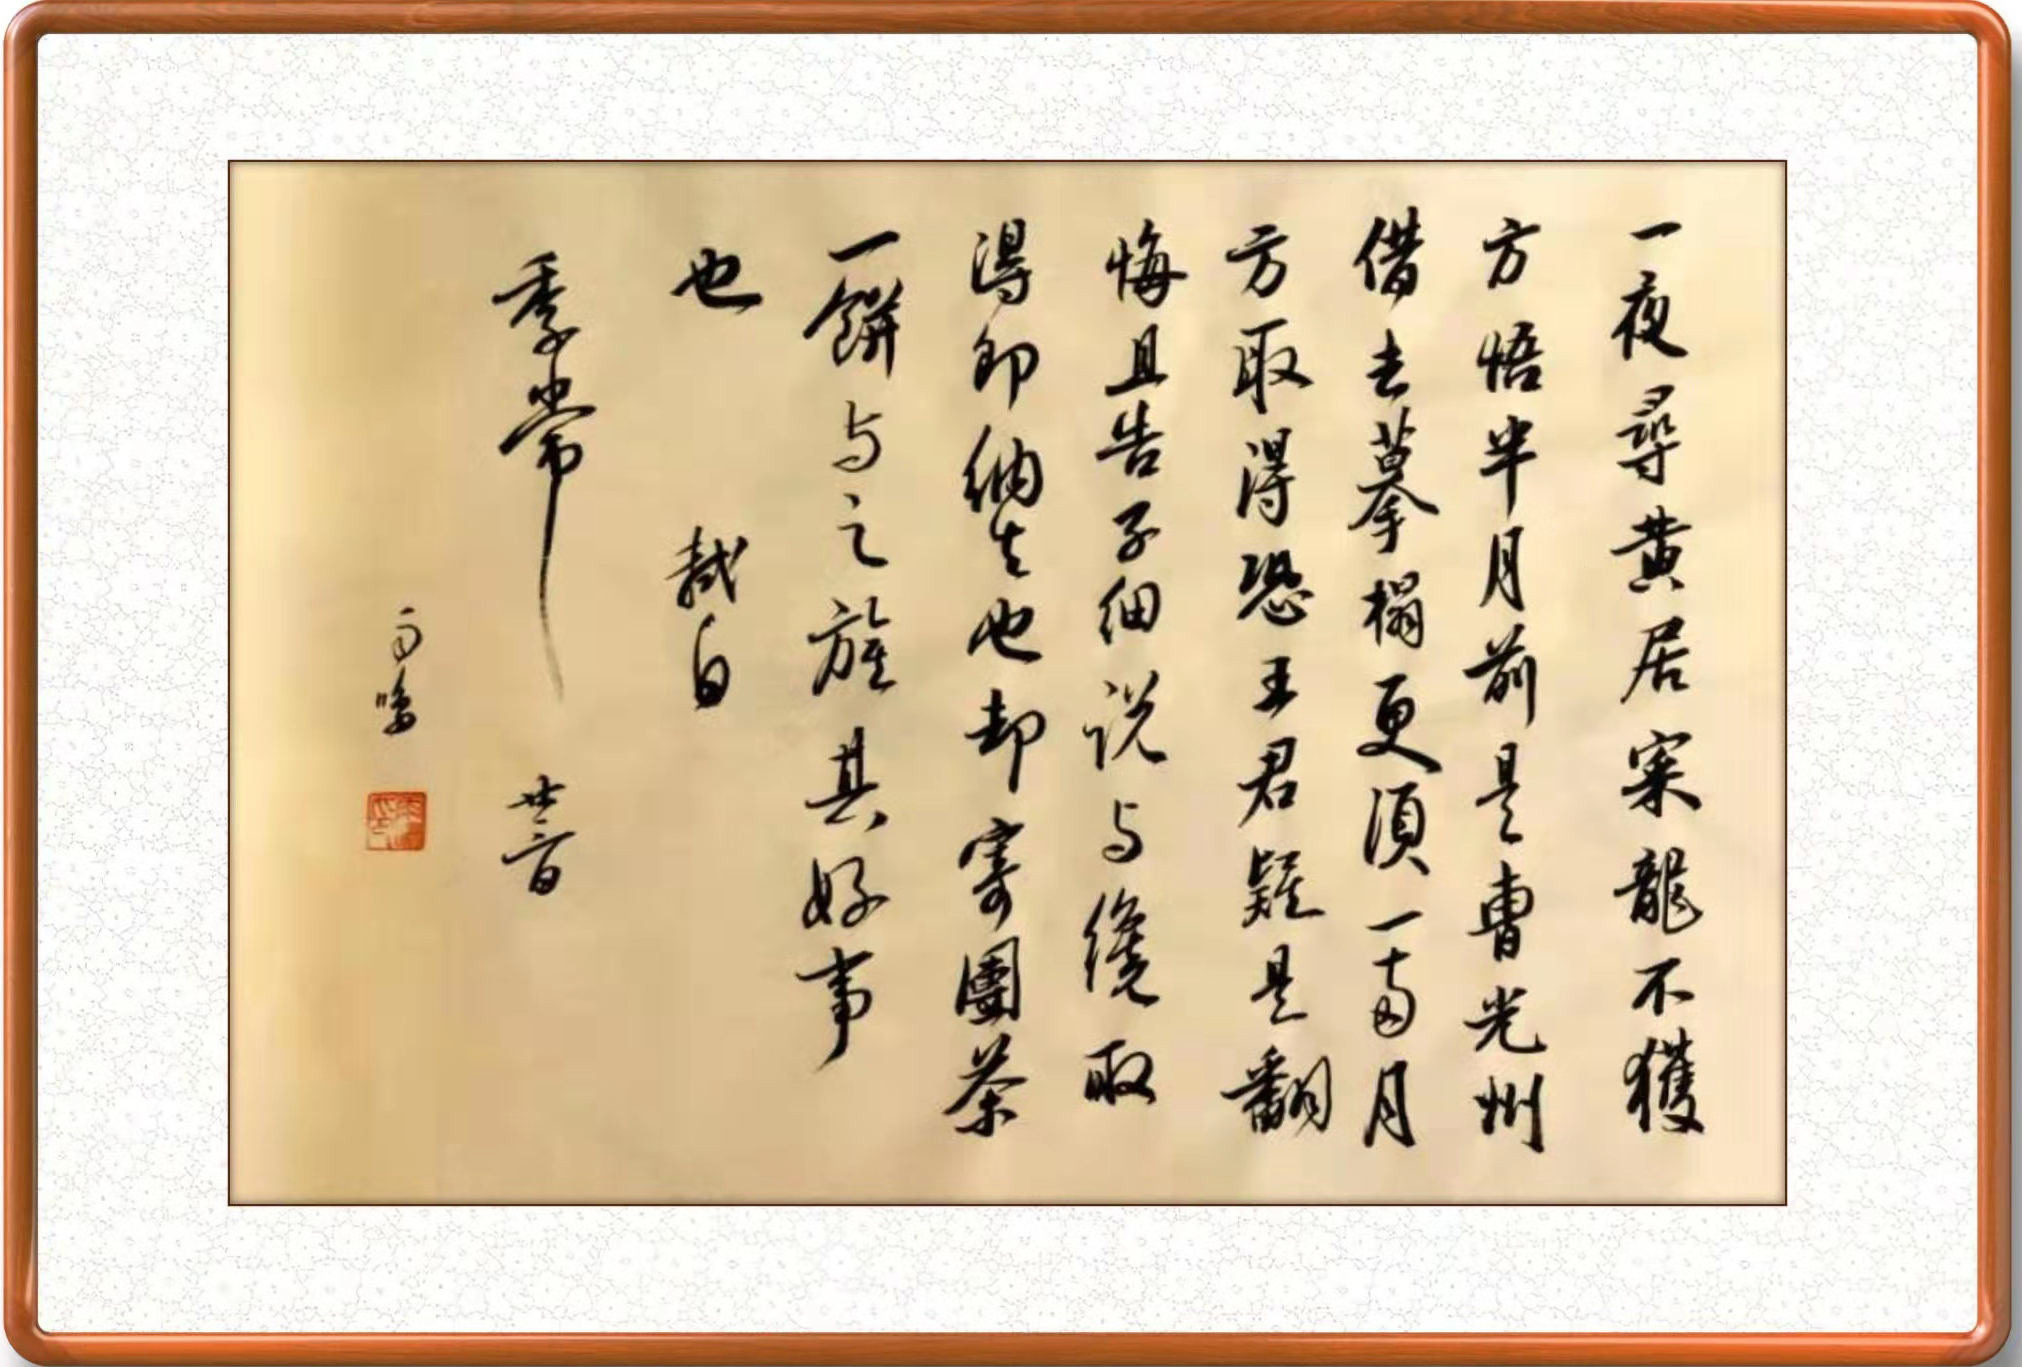 一夜尋黄居寀龍不獲
方悟半月前是曹光州
借去摹榻更須一两月
方取得恐王君疑是翻
悔且告子細说与纔取
得即納去也却寄團茶
一餅与之旌其好事
也 軾白
季常 廿三日